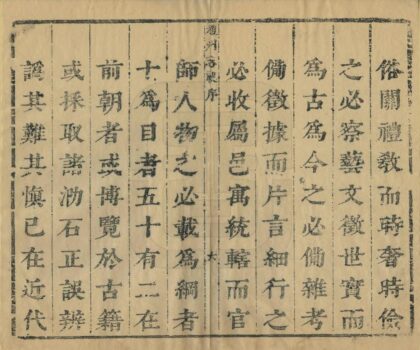 俗關禮敎而時奢時儉
之必察藝文徵世實而
爲古爲今之必備雜考
備徵據而片言細行之
必收屬邑寓統轄而官
州 序
師人物之必載爲綱者
十爲目者五十有二在
前朝者或博覽於古籍
或採取諸泐石正誤辨
譌其難其愼已在近代